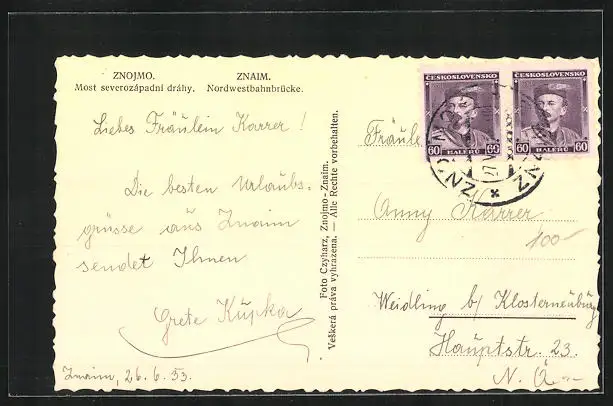 ZNOJMO.
Most severozápadní dráhy.
ZNAIM.
Nordwestbahnbrücke.
Liebes Fräulein Karrer!
Die besten Urlaubs-
grüsse aus Znaim
sendet Ihnen
Grete Kupka
Znaim, 26.6.33.
Foto Czyharz, Znojmo-Znaim.
Veškerá práva vyhrazena. — Alle Rechte vorbehalten.
ČESKOSLOVENSKO
60 HALERŮ 60
ČESKOSLOVENSKO
60 HALERŮ 60
Fräule
Anny Karrer
100-
Weidling b/ Klosterneuburg
Hauptstr. 23.
N. Ö.